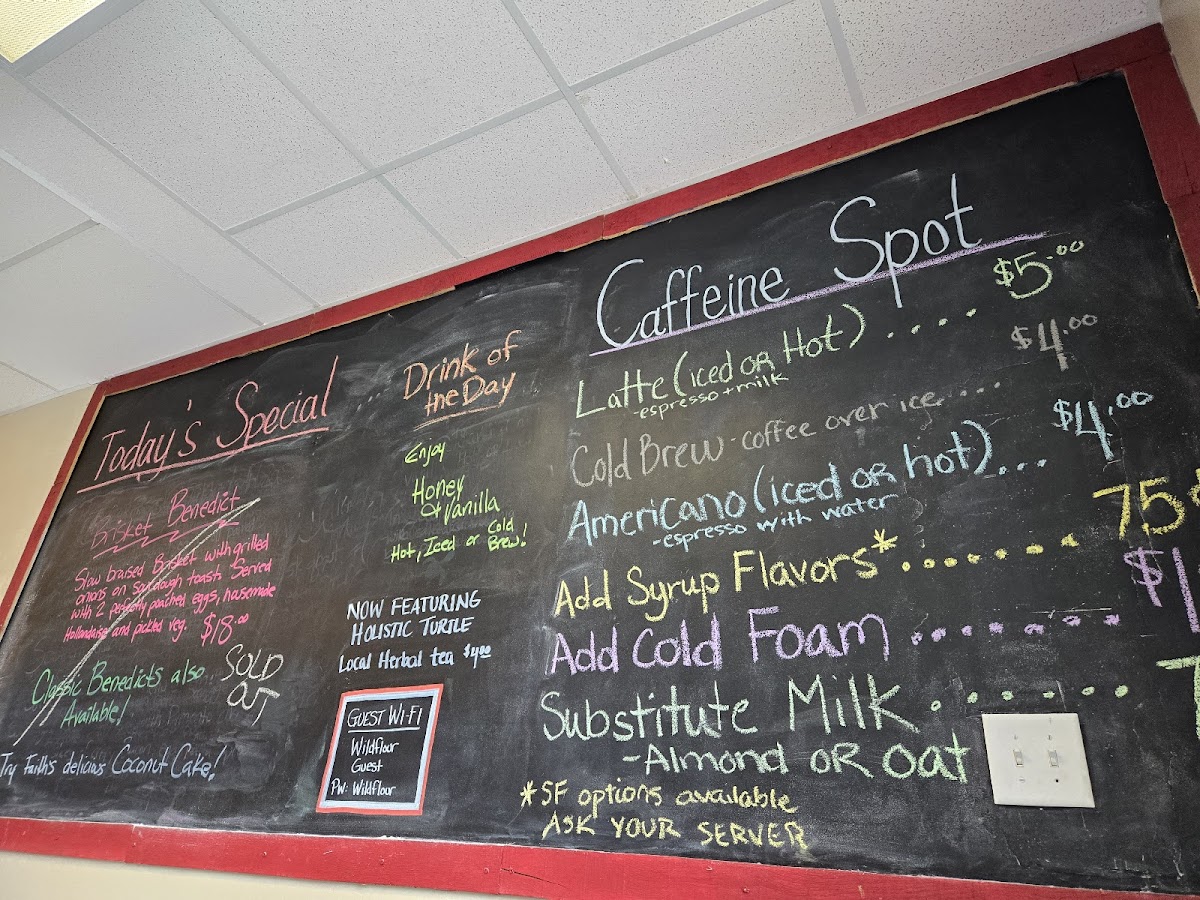 Today's Special
Brisket Benedict
Slow braised Brisket with grilled
onions on sourdough toast. Served
with 2 perfectly poached eggs, housemade
Hollandaise and pickled veg. $18.00
Classic Benedicts also
Available!
SOLD
OUT
Try Faith's delicious Coconut Cake!
Drink of
the Day
Enjoy
Honey
& Vanilla
Hot, Iced or Cold
Brew!
NOW FEATURING
HOLISTIC TURTLE
Local Herbal tea $4.00
GUEST WI-FI
Wildflour
Guest
PW: Wildflour
Caffeine Spot
Latte (iced OR Hot) .... $5.00
-espresso + milk
Cold Brew - coffee over ice... $4.00
Americano (iced OR hot)... $4.00
-espresso with water
Add Syrup Flavors* ....... 75
Add Cold Foam ....... $1
Substitute Milk .....
-Almond OR Oat
*SF options available
ASK YOUR SERVER